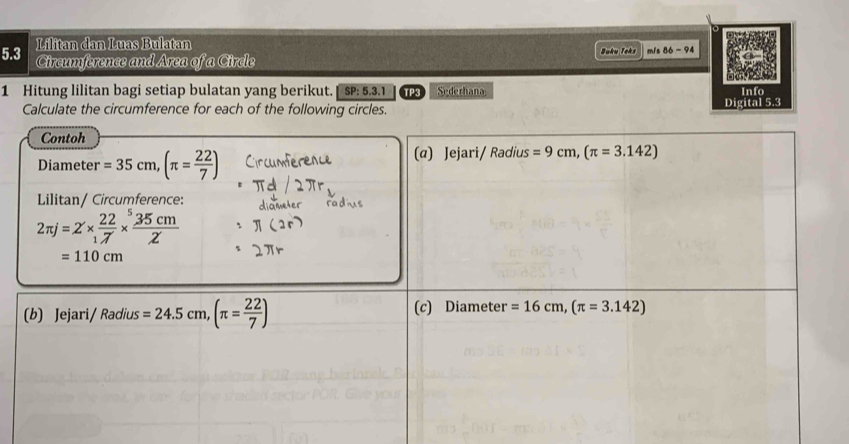 5.3 Lilitan dan Luas Bulatan
Circumference and Area of a Circle
Buku Teks m/s 86 – 94
Info
Digital 5.3
1 Hitung lilitan bagi setiap bulatan yang berikut. SP: 5.3.1 TP3 Sederhana
Calculate the circumference for each of the following circles.
Contoh
Diameter = 35 cm, (π = 22/7)
Lilitan/ Circumference:
2πj = 2 × 22/7 × 35 cm/2
1 5
= 110 cm
Circumference
= πd / 2πr
diameter radius
= π (2r)
= 2πr
(a) Jejari/ Radius = 9 cm, (π = 3.142)
(b) Jejari/ Radius = 24.5 cm, (π = 22/7)
(c) Diameter = 16 cm, (π = 3.142)